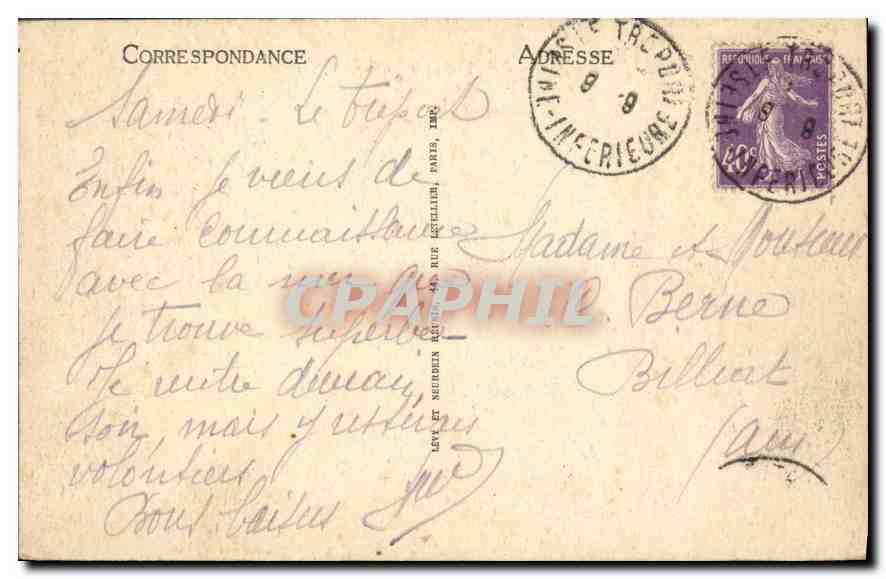 CORRESPONDANCE
ADRESSE
Samedi. Le Tréport
Enfin je viens de
faire connaissance
avec la mer que
je trouve superbe
Je rentre demain
soir, mais j'y resterais
volontiers.
Bons baisers
Madame et Monsieur
C. Berne
Billiat
(Ain)
LÉVY ET NEURDEIN RÉUNIS, 44, RUE LETELLIER, PARIS, IMP.
LE TREPORT
SEINE-INFERIEURE
9 -9
REPUBLIQUE FRANÇAISE
40c
POSTES
CPAPHIL